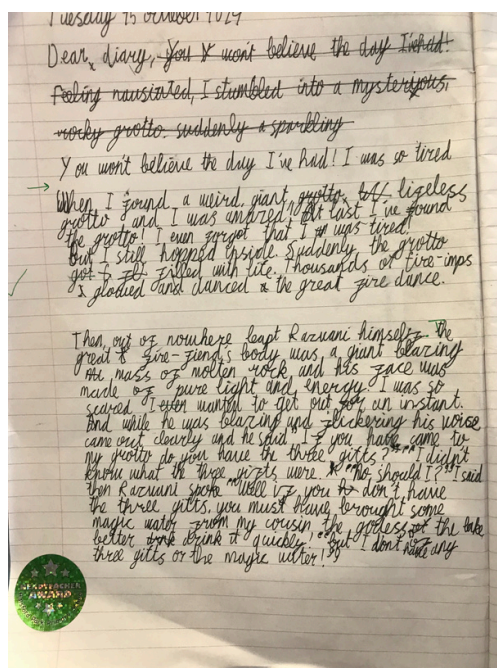 Tuesday 15 October
Dear diary, You won't believe the day I've had!
Feeling nausiated, I stumbled into a mysteriyous,
rocky grotto. suddenly a sparkling
You won't believe the day I've had! I was so tired
When I found a weird, giant grotto, lifeless
grotto and I was amazed! At last I've found
the grotto! I even forgot that I was tired!
but I still hopped inside. Suddenly the grotto
got filled with life. Thousands of fire-imps
glowed and danced the great fire dance.
Then, out of nowhere leapt Razuani himself, the
great fire-fiend's body was a giant blazing
mass of molten rock and his face was
made of pure light and energy. I was so
scared I even wanted to get out for an instant.
And while he was blazing and flickering his voise
came out clearly and he said "If you have came to
my grotto do you have the three gifts?" "I didn't
know what the three gifts were. "No should I?" I said
then Razuani spoke "Well if you don't have
the three gifts, you must have brought some
magic water from my cousin, the godess of the lake
better drink it quickly!" "but I don't have any
three gifts or the magic water!"
HEADTEACHER
AWARD